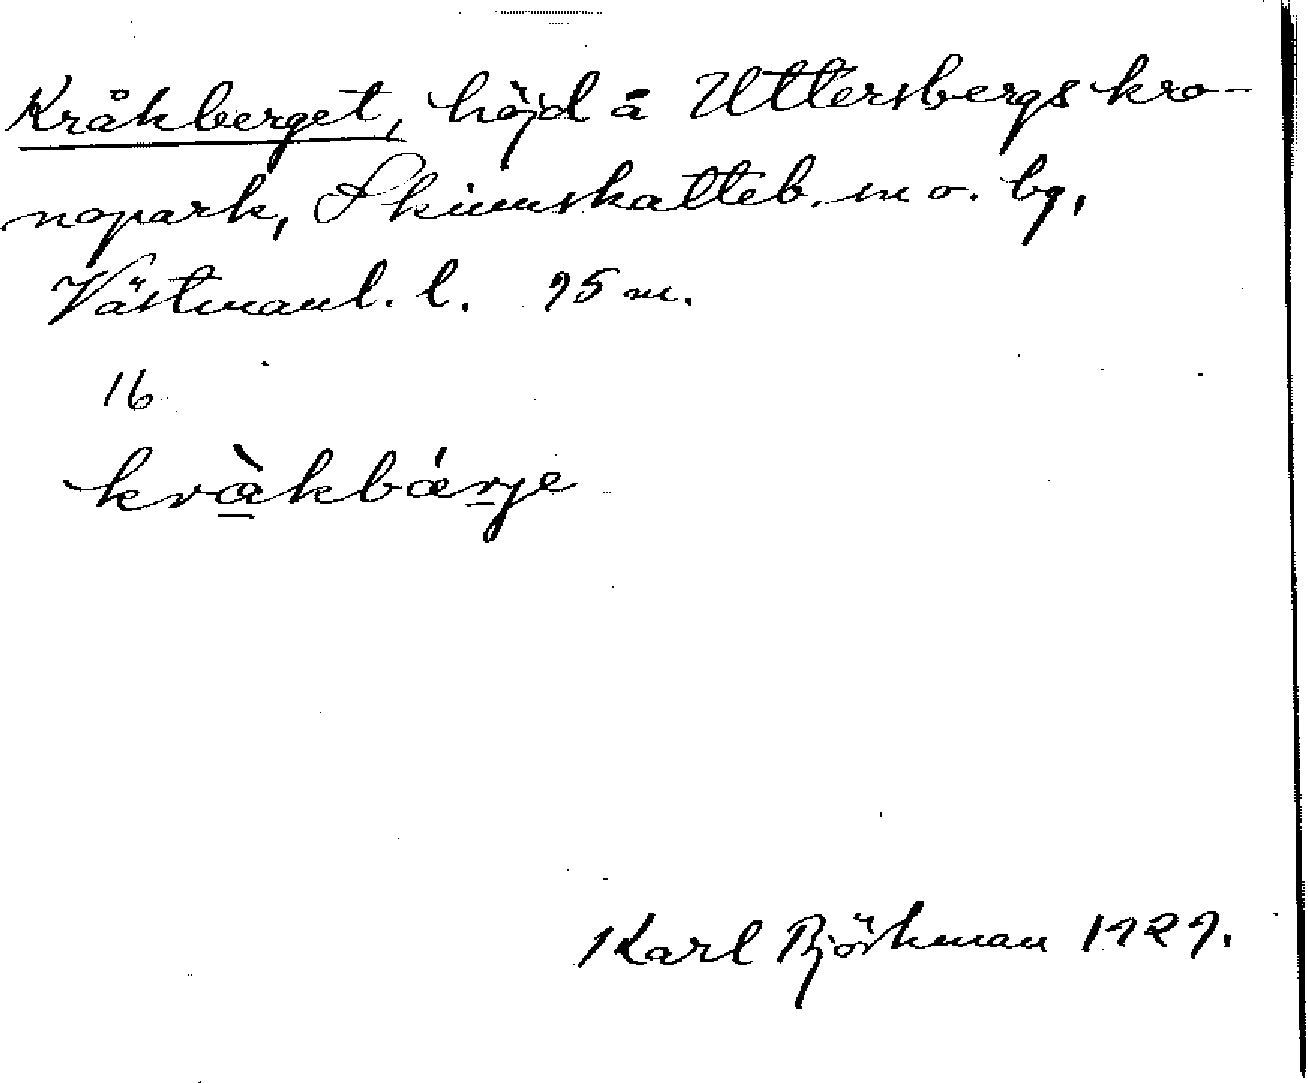 Kråkberget, höjd å Uttersbergs kro-
nopark, Skinnskatteb. sn o. bg,
Västmanl. l. 95 m.
16
kràkbárje
Karl Björkman 1929.